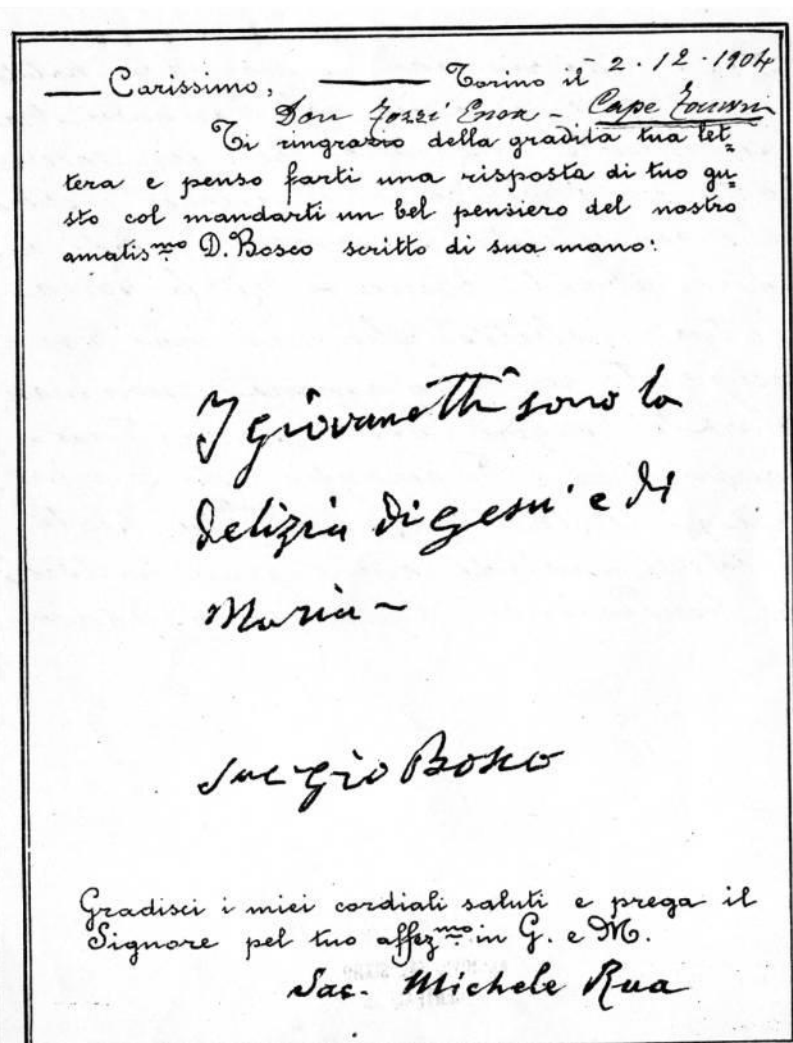 Carissimo, Torino il 2.12.1904
Don Tozzi Enea - Cape Town
Ti ringrazio della gradita tua let=
tera e penso farti una risposta di tuo gu=
sto col mandarti un bel pensiero del nostro
amatis.mo D. Bosco scritto di sua mano:
I giovanetti sono la
delizia di Gesù e di
Maria -
Sac Gio Bosco
Gradisci i miei cordiali saluti e prega il
Signore pel tuo affez.mo in G. e M.
Sac. Michele Rua